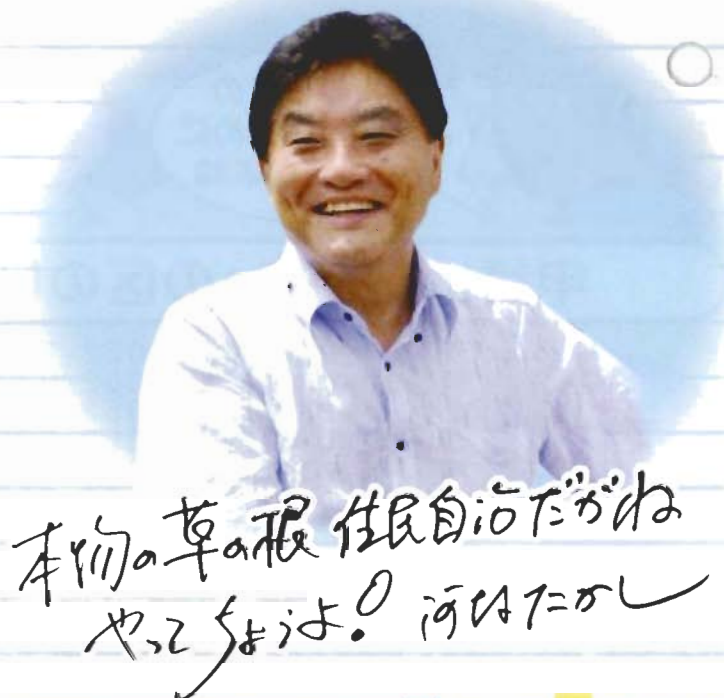 本物の草の根 住民自治だがね
やってちょうよ! 河村たかし